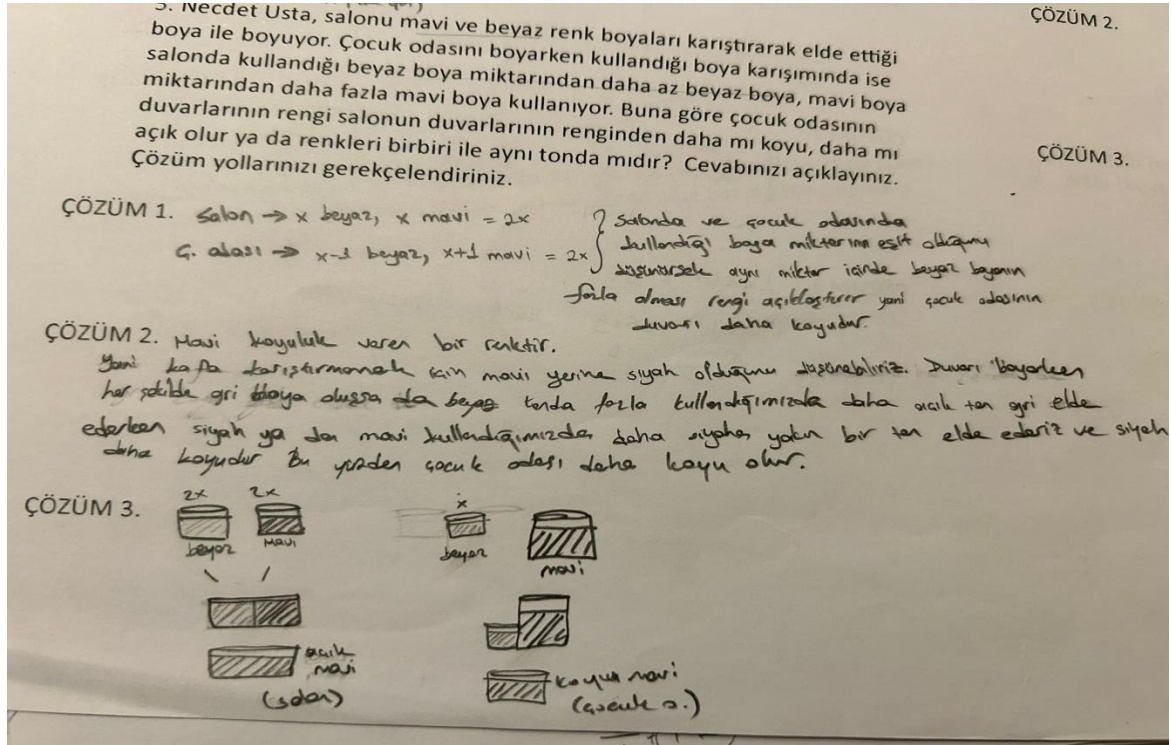 5. Necdet Usta, salonu mavi ve beyaz renk boyaları karıştırarak elde ettiği
boya ile boyuyor. Çocuk odasını boyarken kullandığı boya karışımında ise
salonda kullandığı beyaz boya miktarından daha az beyaz boya, mavi boya
miktarından daha fazla mavi boya kullanıyor. Buna göre çocuk odasının
duvarlarının rengi salonun duvarlarının renginden daha mı koyu, daha mı
açık olur ya da renkleri birbiri ile aynı tonda mıdır? Cevabınızı açıklayınız.
Çözüm yollarınızı gerekçelendiriniz.
ÇÖZÜM 2.
ÇÖZÜM 3.
ÇÖZÜM 1. Salon → x beyaz, x mavi = 2x
Ç. odası → x-1 beyaz, x+1 mavi = 2x
Salonda ve çocuk odasında
kullandığı boya miktarının eşit olduğunu
düşünürsek aynı miktar içinde beyaz boyanın
fazla olması rengi açıklaştırır yani çocuk odasının
duvarı daha koyudur.
ÇÖZÜM 2. Mavi koyuluk veren bir renktir.
Yani kafa karıştırmamak için mavi yerine siyah olduğunu düşünebiliriz. Duvarı boyarken
her şekilde gri boya oluşsa da beyaz tonda fazla kullandığımızda daha açık ton gri elde
ederken siyah ya da mavi kullandığımızda daha siyaha yakın bir ton elde ederiz ve siyah
daha koyudur Bu yüzden çocuk odası daha koyu olur.
ÇÖZÜM 3.
2x 2x x
beyaz mavi beyaz mavi
açık mavi
(salon)
koyu mavi
(çocuk o.)